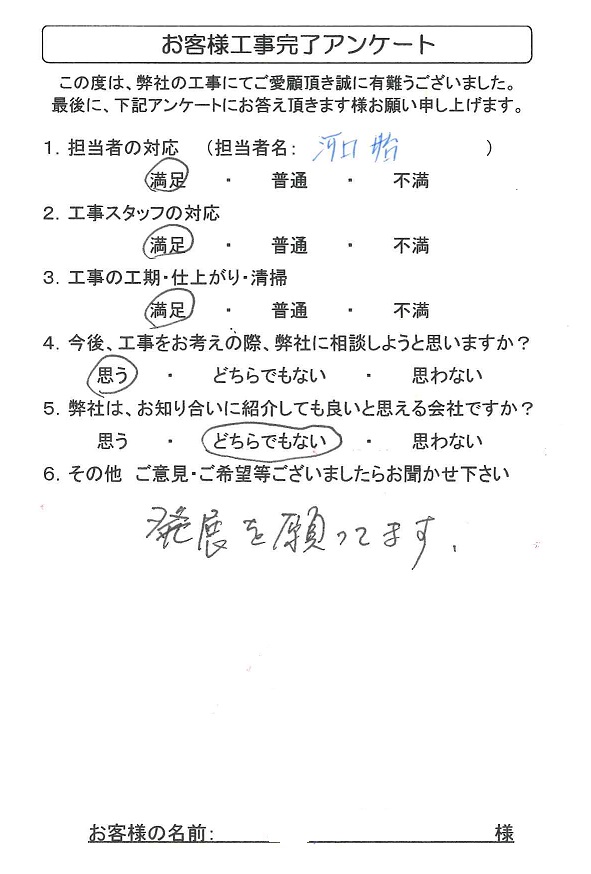 お客様工事完了アンケート
この度は、弊社の工事にてご愛顧頂き誠に有難うございました。
最後に、下記アンケートにお答え頂きます様お願い申し上げます。
1. 担当者の対応 (担当者名: 河口 )
満足 ・ 普通 ・ 不満
2. 工事スタッフの対応
満足 ・ 普通 ・ 不満
3. 工事の工期・仕上がり・清掃
満足 ・ 普通 ・ 不満
4. 今後、工事をお考えの際、弊社に相談しようと思いますか?
思う ・ どちらでもない ・ 思わない
5. 弊社は、お知り合いに紹介しても良いと思える会社ですか?
思う ・ どちらでもない ・ 思わない
6. その他 ご意見・ご希望等ございましたらお聞かせ下さい
発展を願ってます.
お客様の名前: 様